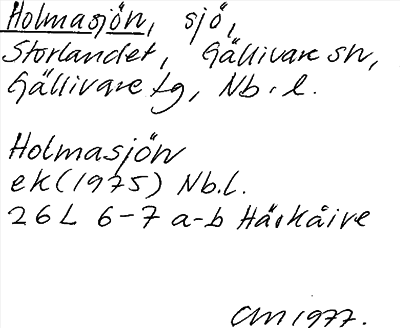 Holmasjön, sjö,
Storlandet, Gällivare sn,
Gällivare tg, Nb.l.
Holmasjön
ek (1975) Nb.l.
26L 6-7 a-b Härkåive
CM 1977.